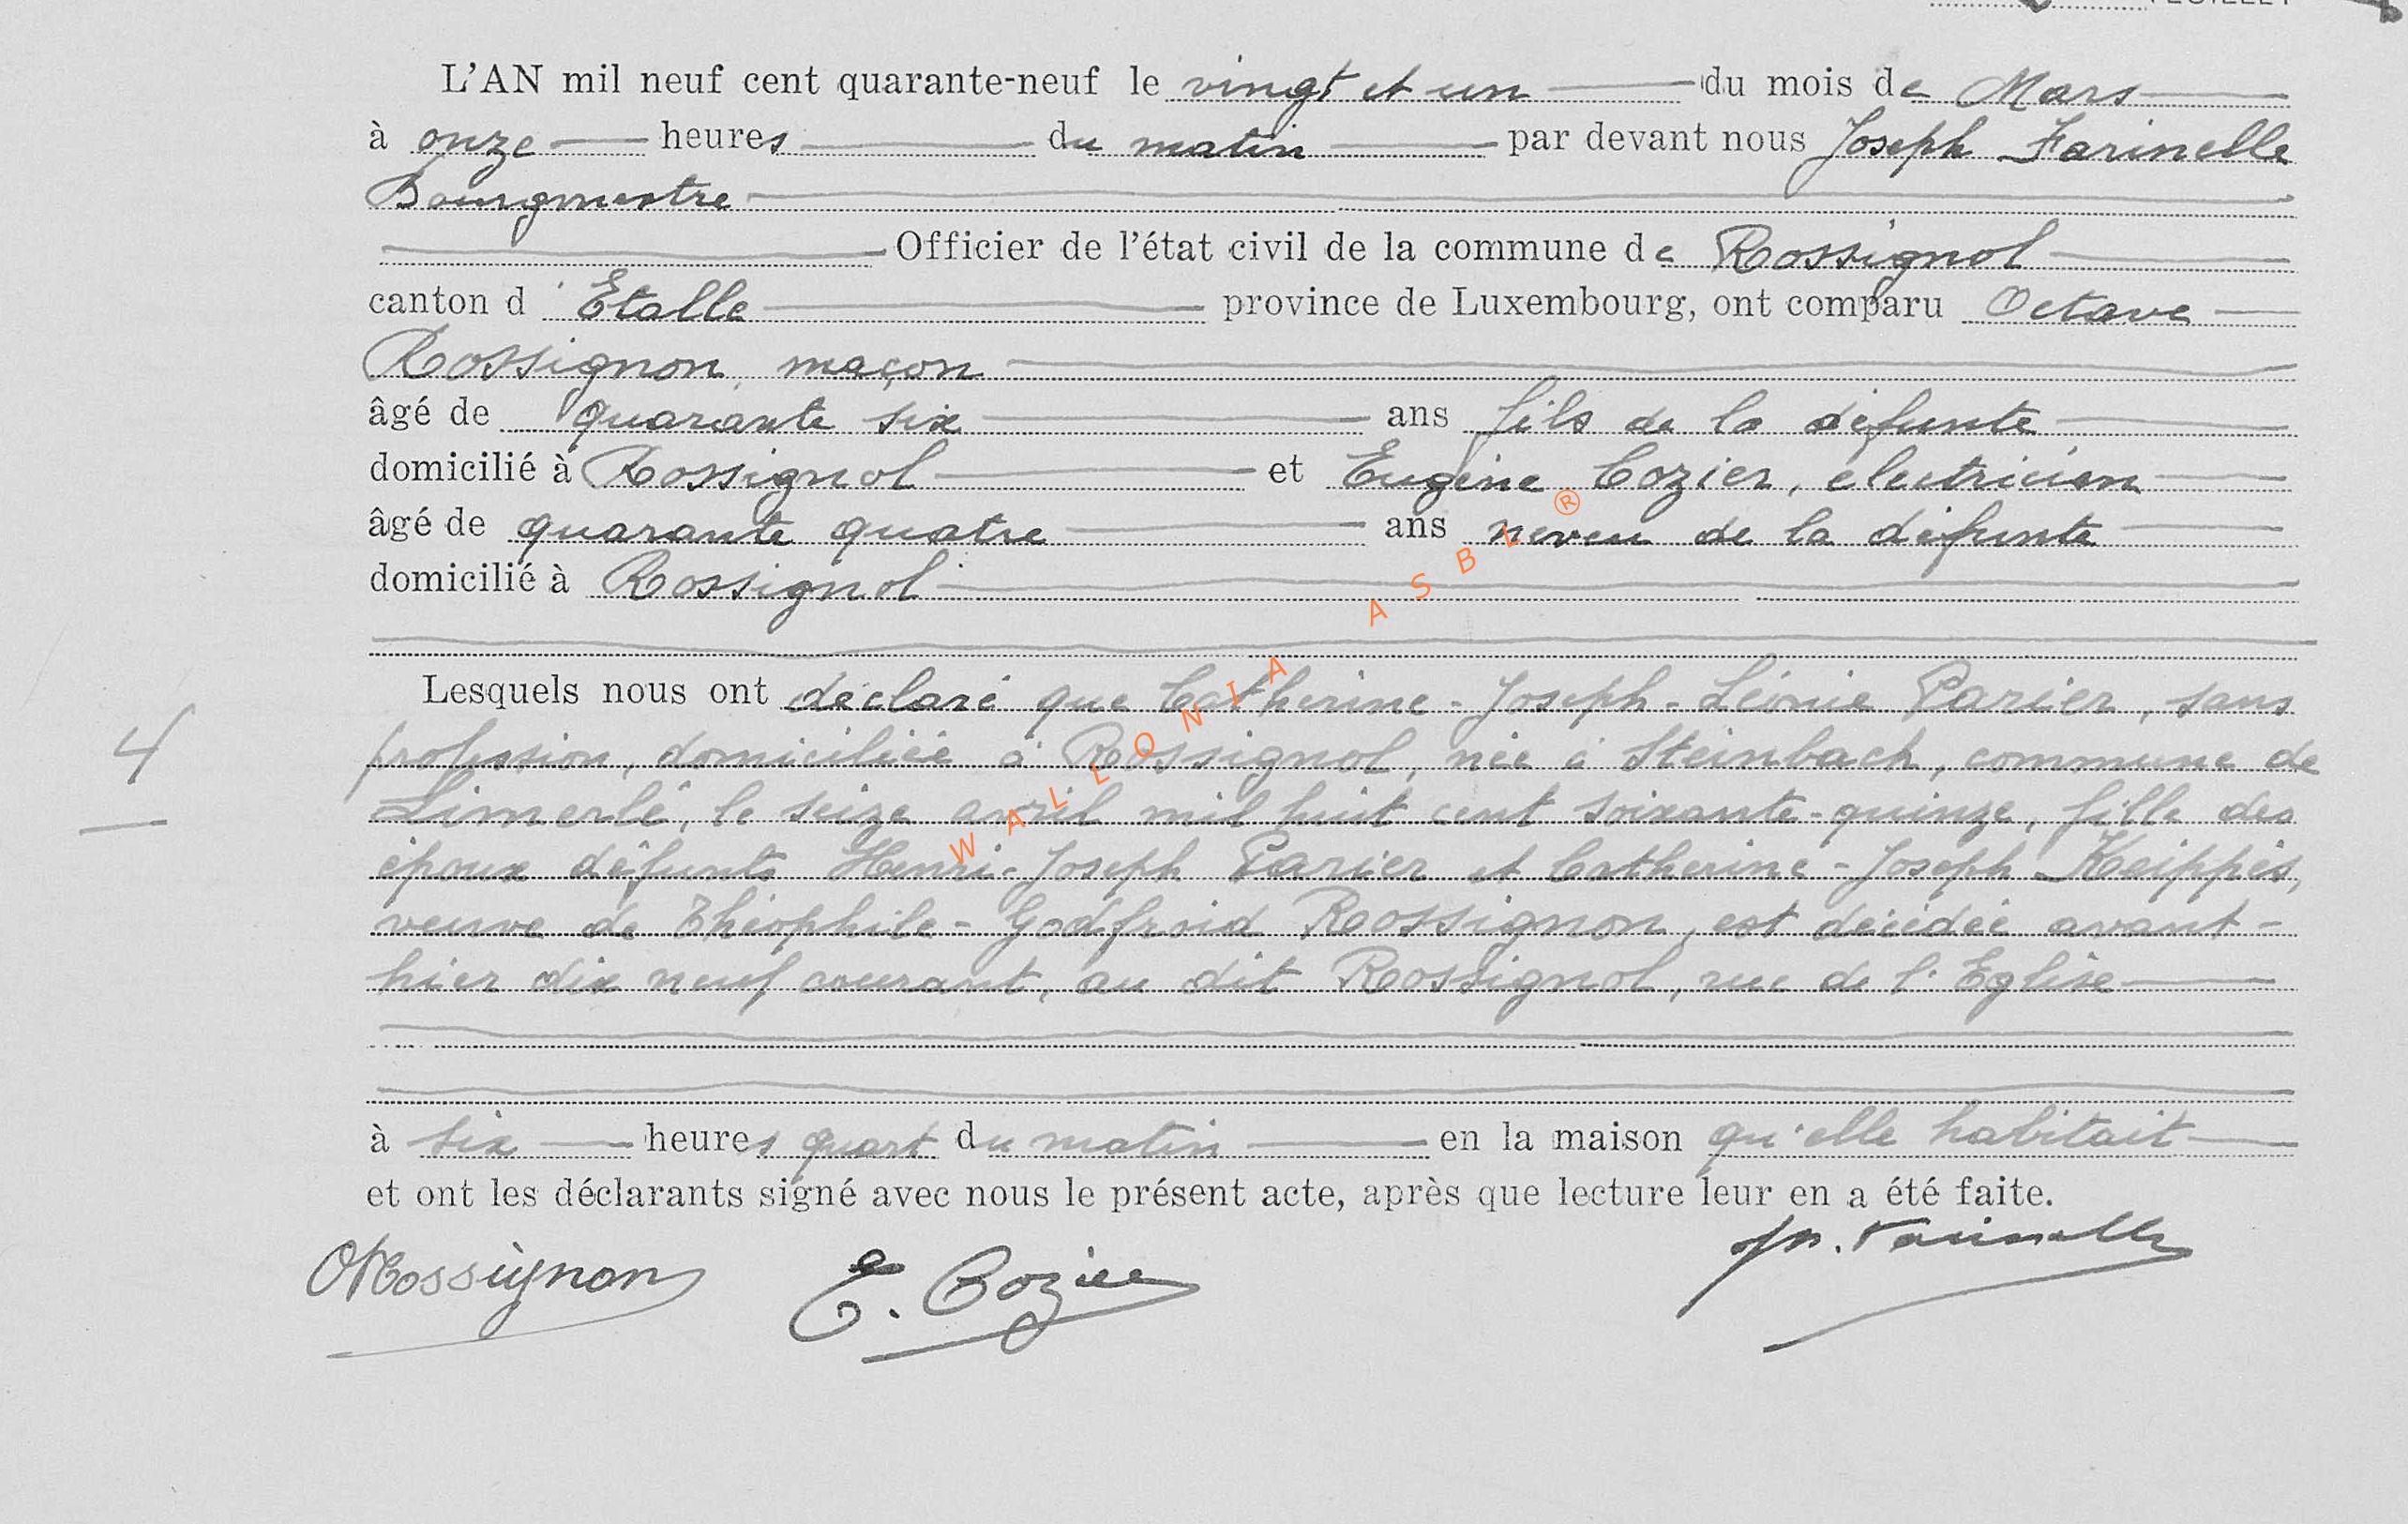 L'AN mil neuf cent quarante-neuf le vingt et un du mois de Mars
à onze heures du matin par devant nous Joseph Farinelle
Bourgmestre
Officier de l'état civil de la commune de Rossignol
canton d'Etalle province de Luxembourg, ont comparu Octave
Rossignon, maçon
âgé de quarante six ans fils de la défunte
domicilié à Rossignol et Eugène Cozier, électricien
âgé de quarante quatre ans neveu de la défunte
domicilié à Rossignol
Lesquels nous ont déclaré que Catherine-Joseph-Léonie Parier, sans
4
profession, domiciliée à Rossignol, née à Steinbach, commune de
Limerlé, le seize avril mil huit cent soixante-quinze, fille des
époux défunts Henri-Joseph Parier et Catherine-Joseph Keippès,
veuve de Théophile-Godfroid Rossignon, est décédée avant-
hier dix neuf courant, au dit Rossignol, rue de l'Eglise
à six heures quart du matin en la maison qu'elle habitait
et ont les déclarants signé avec nous le présent acte, après que lecture leur en a été faite.
ORossignon E. Cozier Jh. Farinelle
WALLONIA ASBL ®